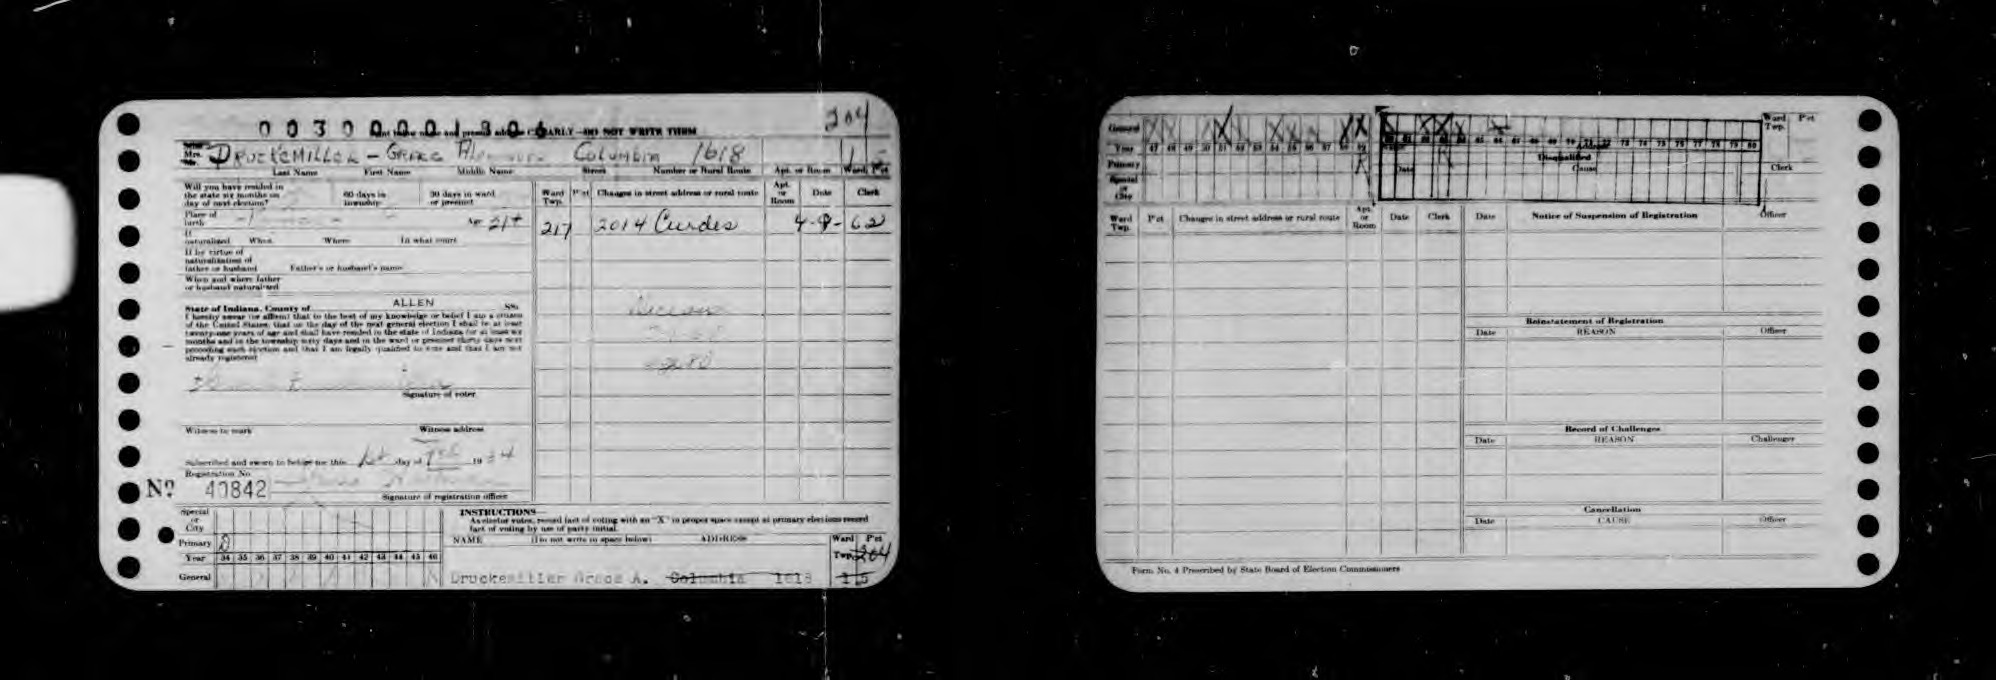 00300001306
Print below name and present address CLEARLY—DO NOT WRITE THEM
204
Mrs. DRUCKEMILLER - GRACE Columbia 1618
Last Name First Name Middle Name Street Number or Rural Route Apt. or Room Ward Pct
Will you have resided in the state six months on day of next election?
60 days in township
30 days in ward or precinct
Place of birth
Age 21+
If naturalized When Where In what court
If by virtue of naturalization of father or husband Father's or husband's name
When and where father or husband naturalized
State of Indiana, County of ALLEN SS:
I hereby swear (or affirm) that to the best of my knowledge or belief I am a citizen
of the United States, that on the day of the next general election I shall be at least
twenty-one years of age and shall have resided in the state of Indiana for at least six
months and in the township sixty days and in the ward or precinct thirty days next
preceding such election and that I am legally qualified to vote and that I am not
already registered
Signature of voter
Witness to mark Witness address
Subscribed and sworn to before me this 1st day of 19 34
Registration No.
No 40842
Signature of registration officer
Ward Twp. Pct Changes in street address or rural route Apt. or Room Date Clerk
217 2014 Curdes 4-9-62
Special or City
Primary D
Year 34 35 36 37 38 39 40 41 42 43 44 45 46
General
INSTRUCTIONS—
As elector votes, record fact of voting with an "X" in proper space except at primary elections record
fact of voting by use of party initial.
NAME (Do not write in space below) ADDRESS Ward Twp. Pct
204
Druckemiller Grace A. Columbia 1618 1 5
General
Year 47 48 49 50 51 52 53 54 55 56 57 58 59
Primary
Special or City
65 66 67 68 69 70 71 72 73 74 75 76 77 78 79 80
Disqualified
Date Cause Clerk
Ward Twp. Pct
Ward Twp. Pct Changes in street address or rural route Apt. or Room Date Clerk
Date Notice of Suspension of Registration Officer
Reinstatement of Registration
Date REASON Officer
Record of Challenges
Date REASON Challenger
Cancellation
Date CAUSE Officer
Form No. 4 Prescribed by State Board of Election Commissioners